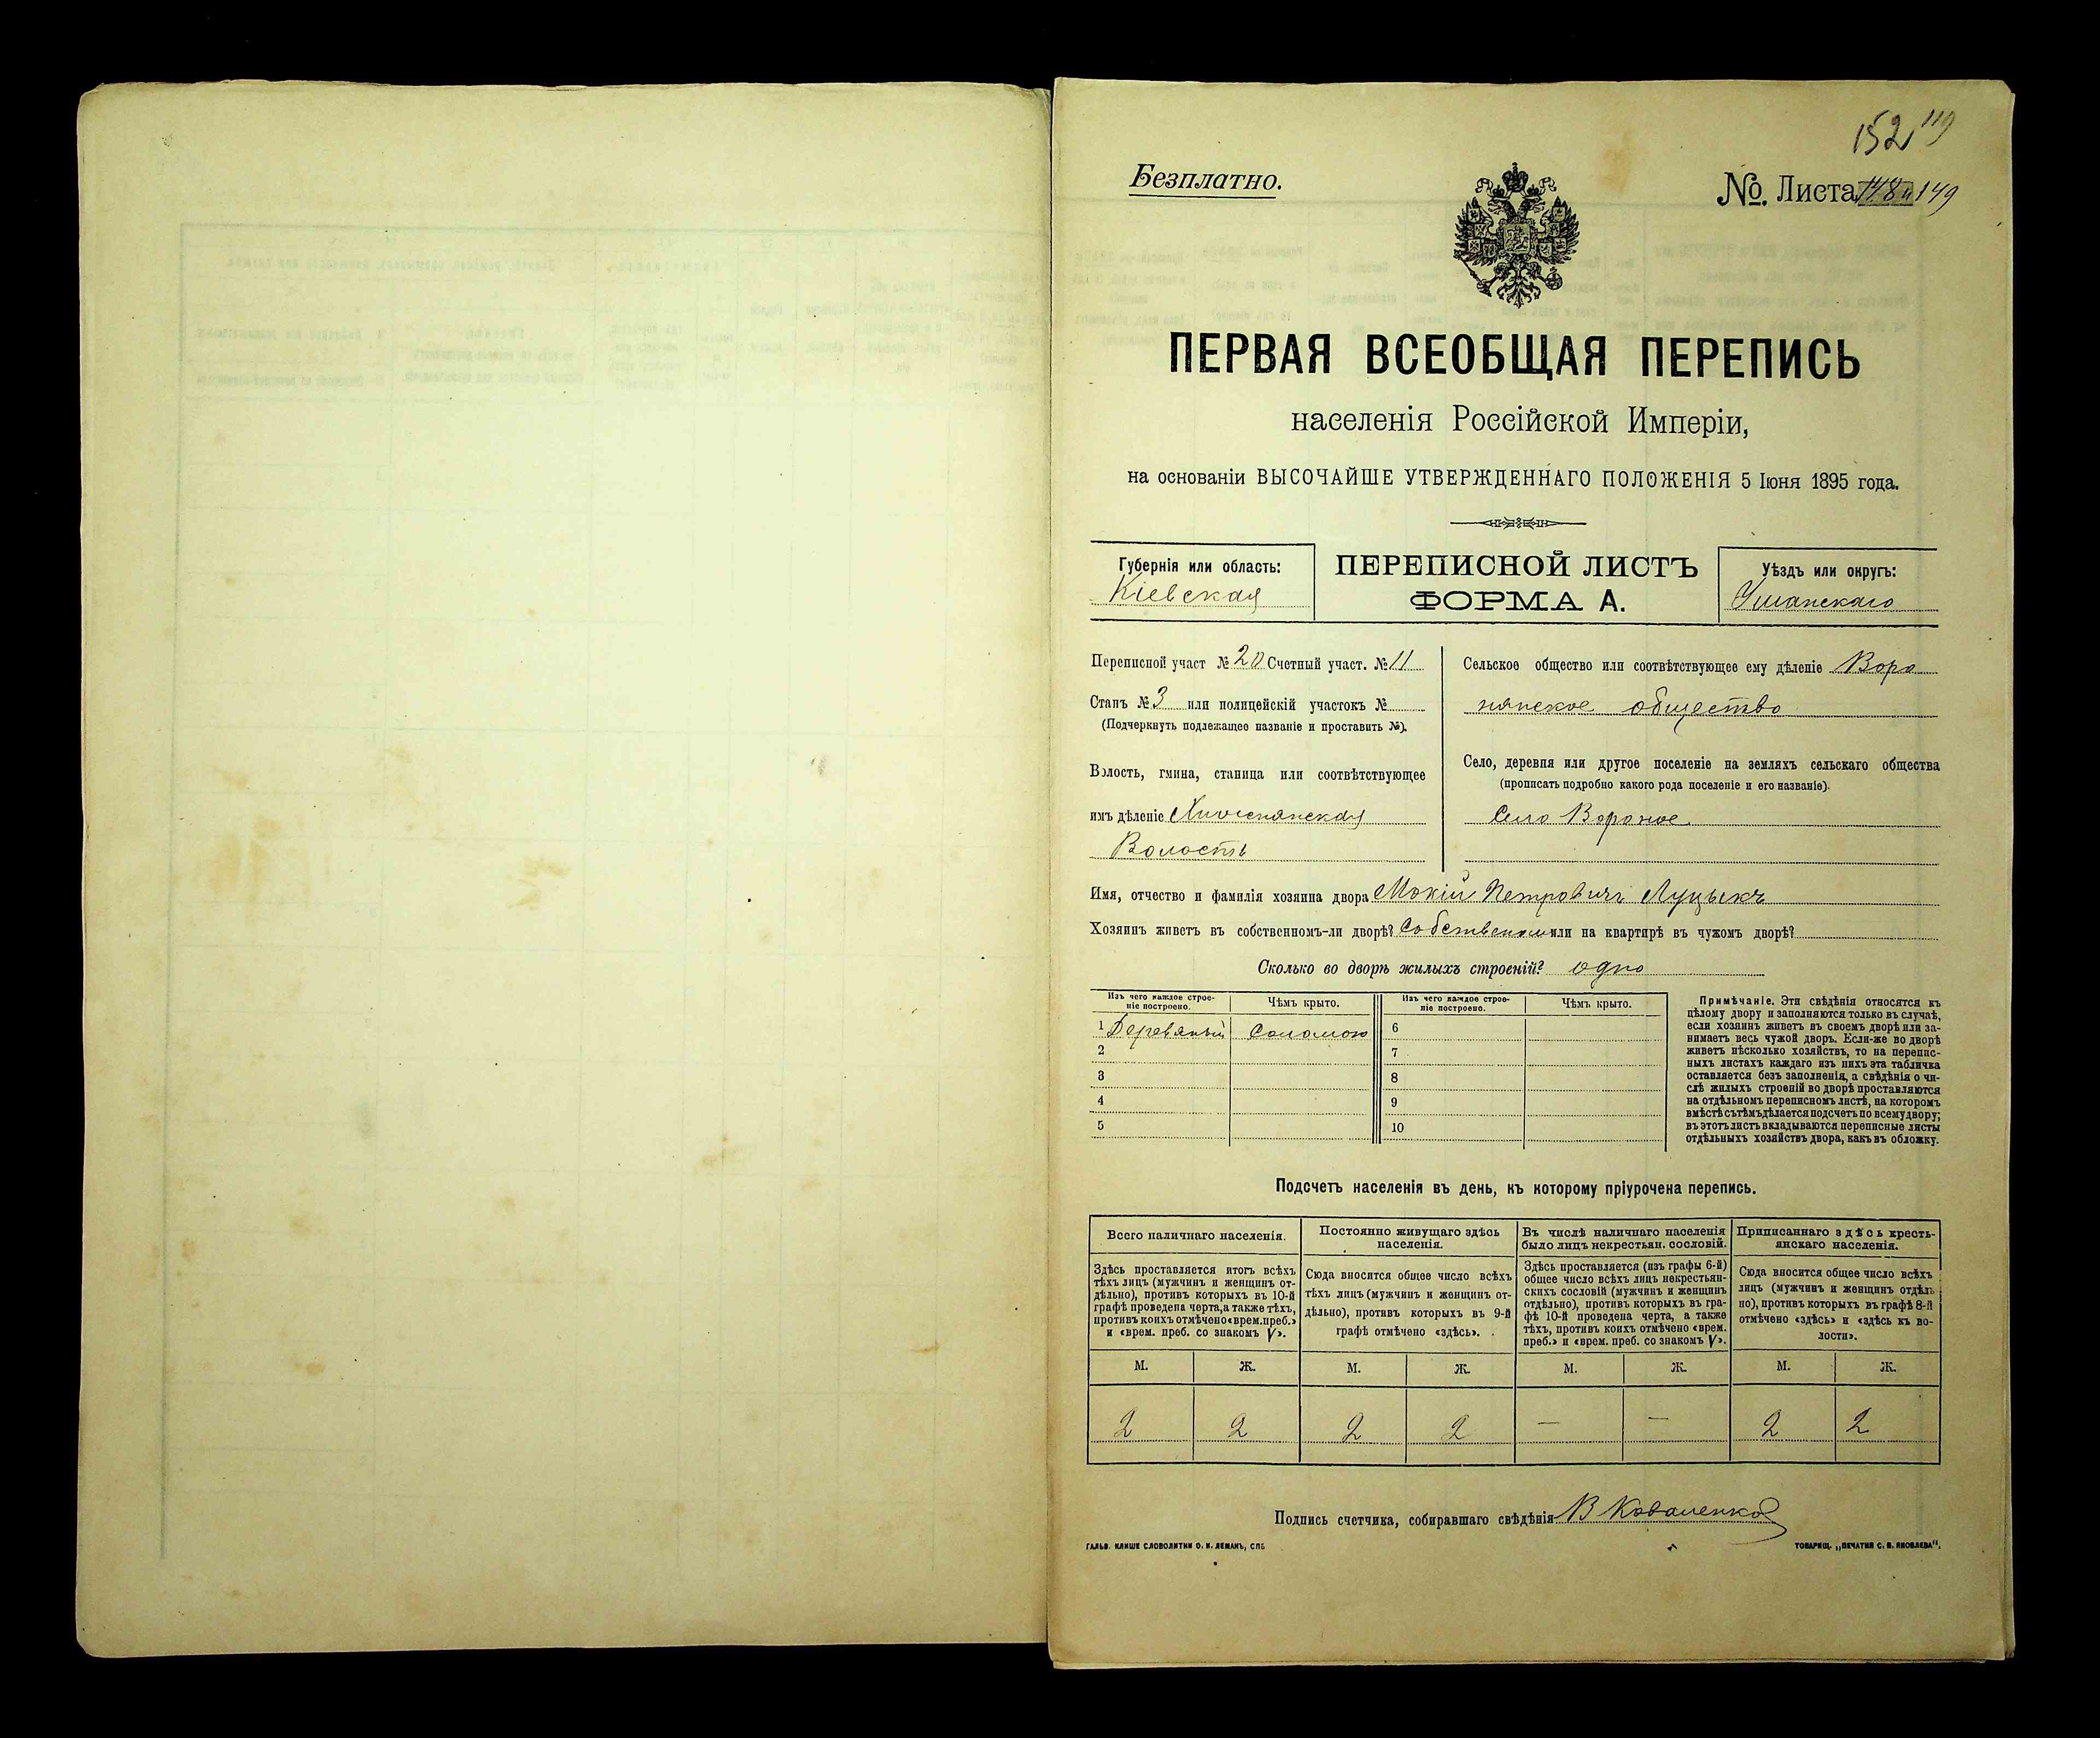 152 119
Безплатно.
№. Листа 149
ПЕРВАЯ ВСЕОБЩАЯ ПЕРЕПИСЬ
населенія Россійской Имперіи,
на основаніи ВЫСОЧАЙШЕ УТВЕРЖДЕННАГО ПОЛОЖЕНІЯ 5 Іюня 1895 года.
Губернія или область:
Кіевская
ПЕРЕПИСНОЙ ЛИСТЪ
ФОРМА А.
Уѣздъ или округъ:
Уманскаго
Переписной участ № 20 Счетный участ. № 11
Станъ № 3 или полицейскій участокъ №
(Подчеркнуть подлежащее названіе и проставить №).
Волость, гмина, станица или соотвѣтствующее
имъ дѣленіе
Волость
Сельское общество или соотвѣтствующее ему дѣленіе Воро
нянское общество
Село, деревня или другое поселеніе на земляхъ сельскаго общества
(прописать подробно какого рода поселеніе и его названіе).
Село Вороное
Имя, отчество и фамилія хозяина двора Мокій Петровичъ Луцыкъ
Хозяинъ живетъ въ собственномъ-ли дворѣ? Собственом или на квартирѣ въ чужомъ дворѣ?
Сколько во дворѣ жилыхъ строеній? одно
Изъ чего каждое строе-
ніе построено.
Чѣмъ крыто.
Изъ чего каждое строе-
ніе построено.
Чѣмъ крыто.
1 Деревяный Соломою 6
2 7
3 8
4 9
5 10
Примѣчаніе. Эти свѣдѣнія относятся къ
цѣлому двору и заполняются только въ случаѣ,
если хозяинъ живетъ въ своемъ дворѣ или за-
нимаетъ весь чужой дворъ. Если-же во дворѣ
живетъ нѣсколько хозяйствъ, то на перепис-
ныхъ листахъ каждаго изъ нихъ эта табличка
оставляется безъ заполненія, а свѣдѣнія о чи-
слѣ жилыхъ строеній во дворѣ проставляются
на отдѣльномъ переписномъ листѣ, на которомъ
вмѣстѣ съ тѣмъ дѣлается подсчетъ по всему двору;
въ этотъ листъ вкладываются переписные листы
отдѣльныхъ хозяйствъ двора, какъ въ обложку.
Подсчетъ населенія въ день, къ которому пріурочена перепись.
Всего наличнаго населенія.
Здѣсь проставляется итогъ всѣхъ
тѣхъ лицъ (мужчинъ и женщинъ от-
дѣльно), противъ которыхъ въ 10-й
графѣ проведена черта, а также тѣхъ,
противъ коихъ отмѣчено «врем. преб.»
и «врем. преб. со знакомъ V».
Постоянно живущаго здѣсь
населенія.
Сюда вносится общее число всѣхъ
тѣхъ лицъ (мужчинъ и женщинъ от-
дѣльно), противъ которыхъ въ 9-й
графѣ отмѣчено «здѣсь».
Въ числѣ наличнаго населенія
было лицъ некрестьян. сословій.
Здѣсь проставляется (изъ графы 6-й)
общее число всѣхъ лицъ некрестьян-
скихъ сословій (мужчинъ и женщинъ
отдѣльно), противъ которыхъ въ гра-
фѣ 10-й проведена черта, а также
тѣхъ, противъ коихъ отмѣчено «врем.
преб.» и «врем. преб. со знакомъ V».
Приписаннаго здѣсь кресть-
янскаго населенія.
Сюда вносится общее число всѣхъ
лицъ (мужчинъ и женщинъ отдѣль
но), противъ которыхъ въ графѣ 8-й
отмѣчено «здѣсь» и «здѣсь къ во-
лости».
М. Ж. М. Ж. М. Ж. М. Ж.
2 2 2 2 — — 2 2
Подпись счетчика, собиравшаго свѣдѣнія В Коваленко
ГАЛЬВ. КЛИШЕ СЛОВОЛИТНИ О. И. ЛЕМАНЪ, СПБ
ТОВАРИЩ. „ПЕЧАТНЯ С. П. ЯКОВЛЕВА".